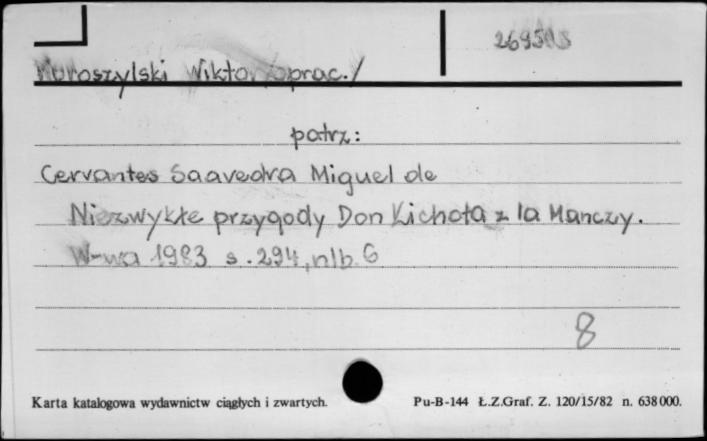 Woroszylski Wiktor /oprac./
patrz:
Cervantes Saavedra Miguel de
Niezwykłe przygody Don Kichota z la Manczy.
W-wa 1983 s. 294, nlb. 6
8
Karta katalogowa wydawnictw ciągłych i zwartych.
Pu-B-144 Ł.Z.Graf. Z. 120/15/82 n. 638 000.